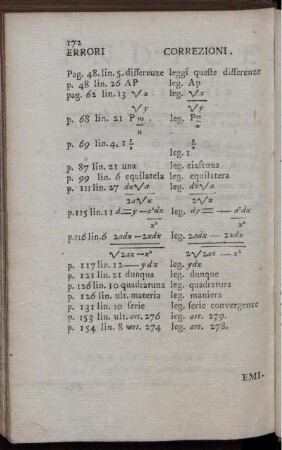 172
ERRORI CORREZIONI.
Pag. 48. lin. 5. differenze leggi queste differenze
p. 48 lin. 26 AP leg. Ap
pag. 62 lin. 13 √x leg. √x
√y √y
p. 68 lin. 21 Pm leg. Pm
n n
p. 69 lin. 4, 1 1/2 1/2
leg. 1
p. 87 lin. 21 una leg. ciascuna
p. 99 lin. 6 equilatela leg. equilatera
p. 111 lin. 27 dx√a leg. dx√a
2a√x 2√x
p. 115 lin. 11 d=y — a²dx leg. dy= — a²dx
x² x²
p. 116 lin. 6 2adx — 2xdx leg. 2adx — 2xdx
√2ax — x² 2√2ax — x²
p. 117 lin. 12 — ydx leg. ydx
p. 121 lin. 21 dunqua leg. dunque
p. 126 lin. 10 quadratuna leg. quadratura
p. 126 lin. ult. materia leg. maniera
p. 131 lin. 10 serie leg. serie convergente
p. 153 lin. ult. art. 276 leg. art. 279.
p. 154 lin. 8 art. 274 leg. art. 278.
EMI-